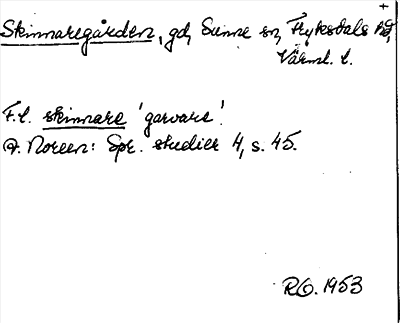 Skinnaregården, gd, Sunne sn, Fryksdals hd,
Värml. l.
F.l. skinnare 'garvare'.
A. Noreen: Spr. studier 4, s. 45.
RO. 1953